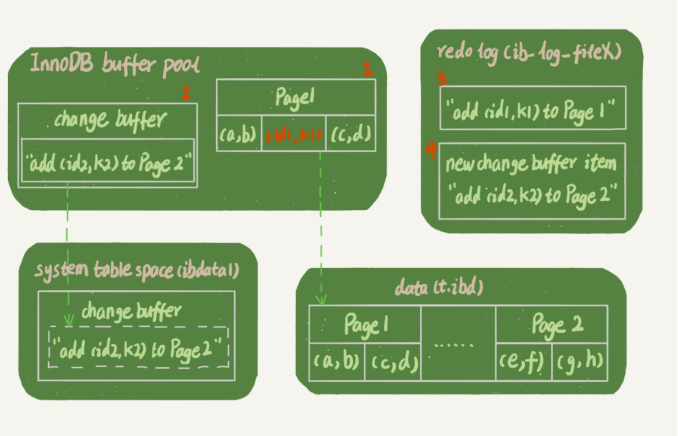 InnoDB buffer pool
1
Page1
(a,b) (id1,k1) (c,d)
2
change buffer
"add (id2,k2) to Page 2"
redo log (ib-log-fileX)
3
"add (id1,k1) to Page 1"
4
new change buffer item
"add (id2,k2) to Page 2"
system table space (ibdata1)
change buffer
"add (id2,k2) to Page 2"
data (t.ibd)
Page1 ...... Page 2
(a,b) (c,d) (e,f) (g,h)